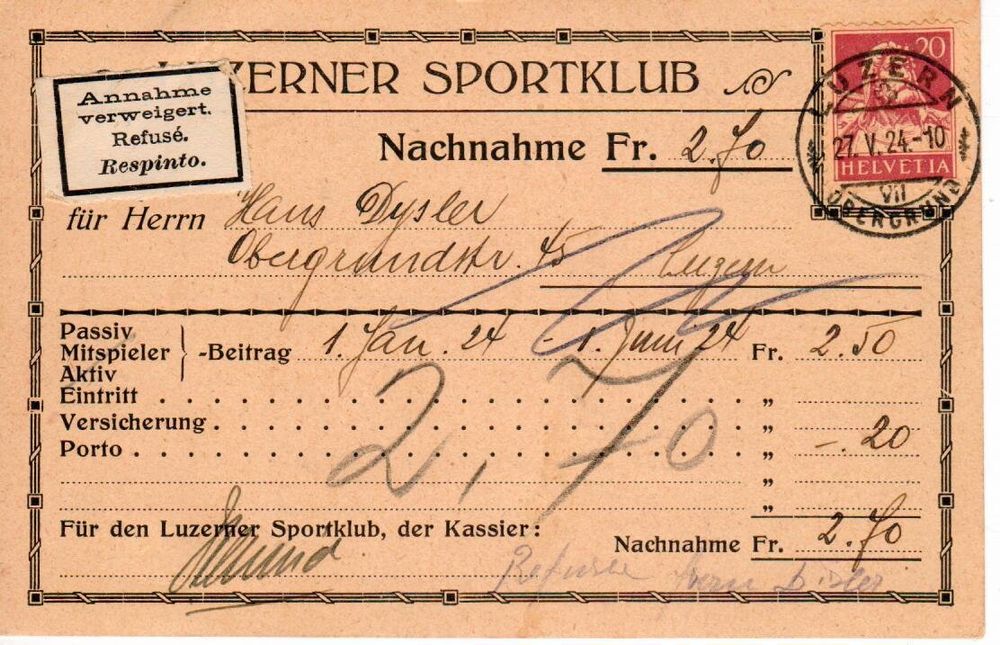 LUZERNER SPORTKLUB
Annahme
verweigert.
Refusé.
Respinto.
20
HELVETIA
LUZERN
27. V. 24.-10
VII
OBERGRUND
Nachnahme Fr. 2.70
für Herrn Hans Dysler
Obergrundstr. 45 Luzern
Passiv
Mitspieler
Aktiv
-Beitrag 1. Jan. 24 - 1. Juni 24 Fr. 2.50
Eintritt . . . . . . . . . . . . . . . . . . . . „
Versicherung . . . . . . . . . . . . . . . . . „ -.20
Porto . . . . . . . . . . . . . . . . . . . . . . „
„
„
2,70
Für den Luzerner Sportklub, der Kassier:
Nachnahme Fr. 2.70